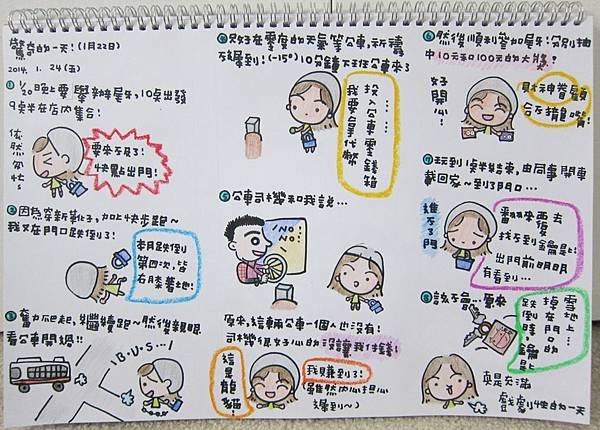 驚奇的一天!(1月22日)
2014. 1. 24 (五)
① 1/22晚上要舉辦尾牙,10點出發
9點半在店內集合!
依然匆忙~
要來不及了!
快點出門!
② 因為穿新靴子,加上快步跑~
我又在門口跌倒了!
本月跌倒
第四次,皆
右膝著地!
③ 奮力爬起,繼續跑~然後親眼
看公車開過!!
BUS...!
④ 只好在零度的天氣等公車,祈禱
不遲到!(-15°)10分鐘下班公車來了
投入公車零錢箱
我要拿代幣
⑤ 公車司機和我說...
NO!
NO!
原來,這輛公車一個人也沒有!
司機很好心的沒讓我付錢!
這是龍貓!
我賺到了!
雖然內心擔心
遲到~)
⑥ 然後順利參加尾牙!分別抽
中10元和100元的大獎!
好開心!
財神眷顧
合不攏嘴!
⑦ 玩到1點半結束,由同事開車
載回家~到了門口...
進不了門
翻來覆去
找不到鑰匙!
出門前明明
有看到...
⑧ 該不會...原來
雪地上...
掉在門口的
跌倒時,鑰匙
真是充滿
戲劇性的一天